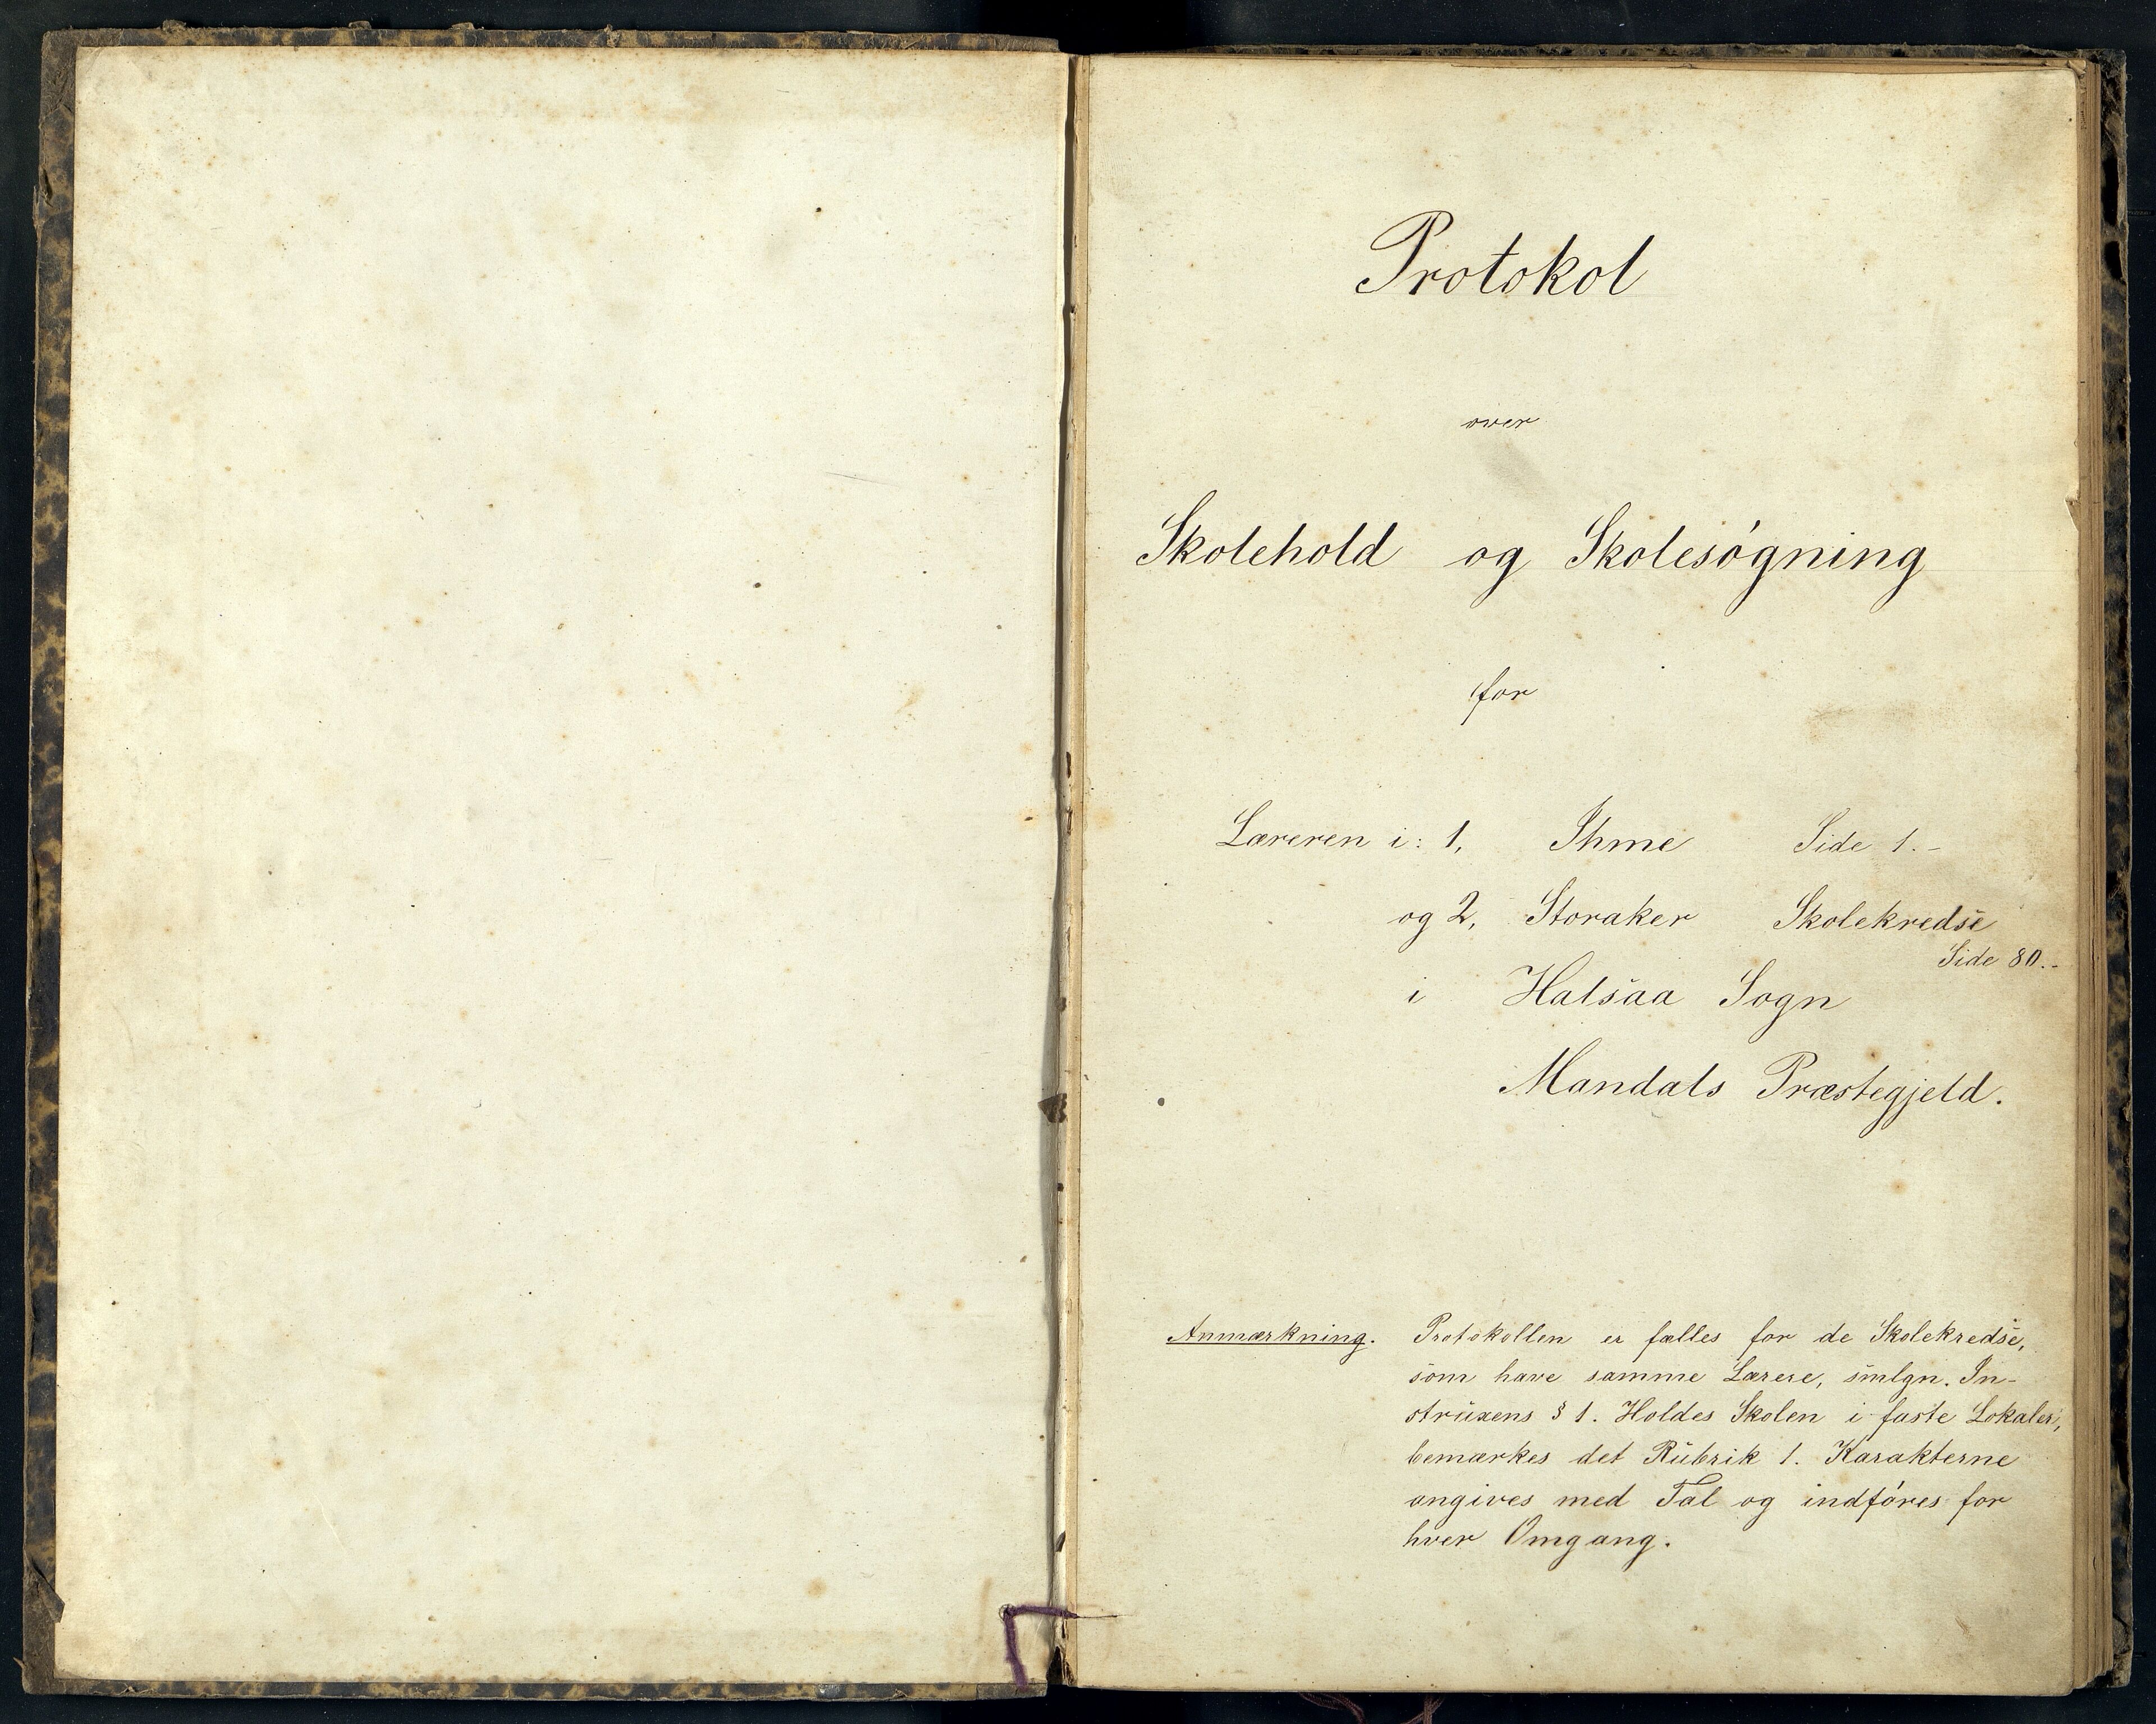 Protokol
over
Skolehold og Skolesøgning
for
Læreren i: 1, Ihme Side 1.-
og 2, Storaker Skolekredse
Side 80.-
i Halsaa Sogn
Mandals Præstegjeld.
Anmærkning. Protokollen er fælles for de Skolekredse,
som have samme Lærere, smlgn. In-
struxens § 1. Holdes Skolen i faste Lokaler,
bemærkes det Rubrik 1. Karakterne
angives med Tal og indføres for
hver Omgang.